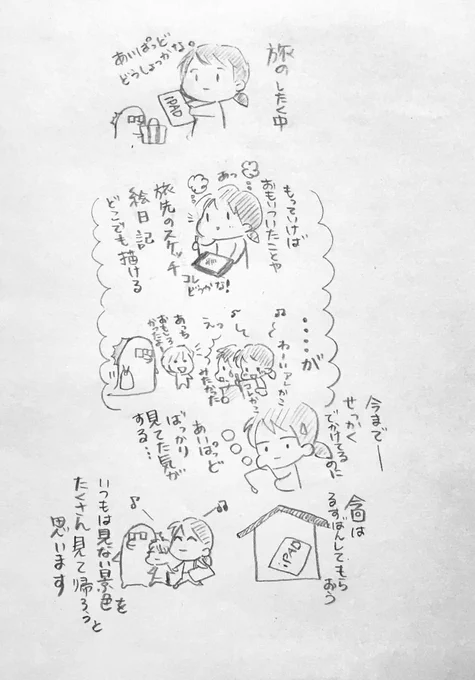 旅の
したく中
あいぱっど
どうしよっかな。
iPAD
もっていけば
おもいついたことや
あっ
旅先のスケッチ
絵日記
どこでも描ける
コレ
どうかな!
……が
わーいアレかこ
コレかこ
えっ
みたかった
あっち
おもしろ
かったよ
今までー
せっかく
でかけてるのに
あいぱっど
ばっかり
見てた気が
する…
今回は
るすばんしてもら
おう
iPAD
いつもは見ない景色を
たくさん見て帰ろうと
思います